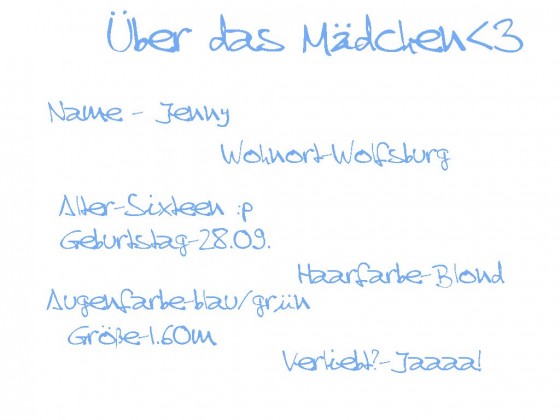 Über das Mädchen<3
Name - Jenny
Wohnort-Wolfsburg
Alter-Sixteen :p
Geburtstag-28.09.
Haarfarbe-Blond
Augenfarbe-blau/grün
Größe-1.60m
Verliebt?-Jaaaa!